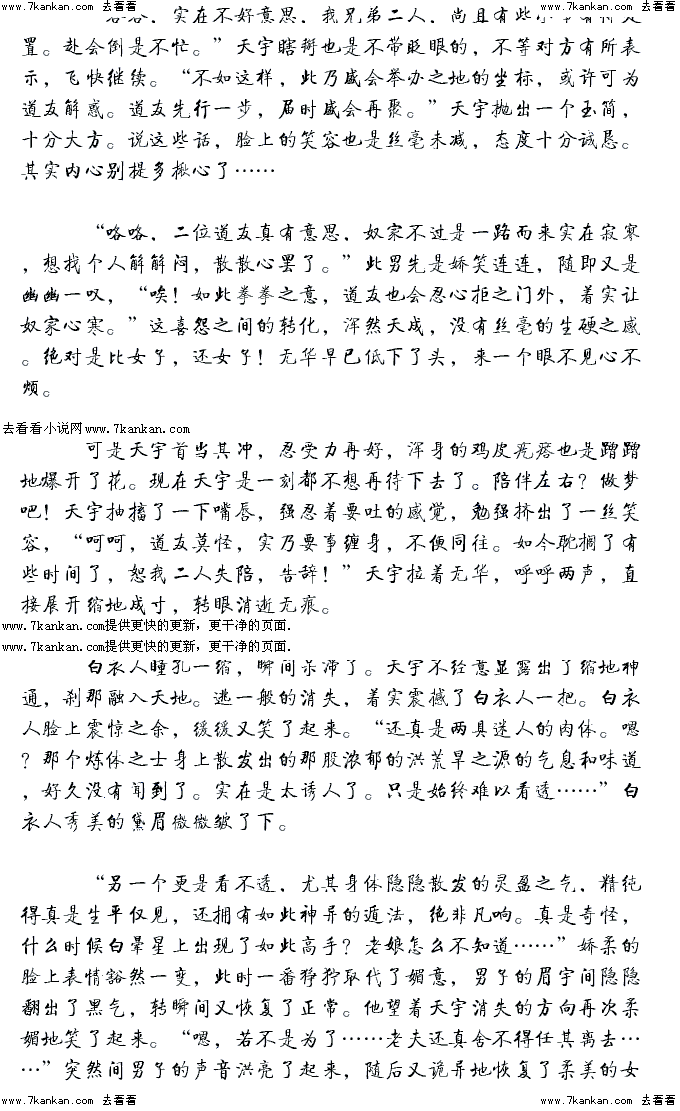 www.7kankan.com 去看看 www.7kankan.com 去看看
，实在不好意思，我兄弟二人，尚且有些小事
置。赴会倒是不忙。”天宇瞎掰也是不带眨眼的，不等对方有所表
示，飞快继续。“不如这样，此乃盛会举办之地的坐标，或许可为
道友解惑。道友先行一步，届时盛会再聚。”天宇抛出一个玉简，
十分大方。说这些话，脸上的笑容也是丝毫未减，态度十分诚恳。
其实内心别提多揪心了……
“咯咯，二位道友真有意思，奴家不过是一路而来实在寂寞
，想找个人解解闷，散散心罢了。”此男先是娇笑连连，随即又是
幽幽一叹，“唉！如此拳拳之意，道友也会忍心拒之门外，着实让
奴家心寒。”这喜怨之间的转化，浑然天成，没有丝毫的生硬之感
。绝对是比女子，还女子！无华早已低下了头，来一个眼不见心不
烦。
去看看小说网www.7kankan.com
可是天宇首当其冲，忍受力再好，浑身的鸡皮疙瘩也是蹭蹭
地爆开了花。现在天宇是一刻都不想再待下去了。陪伴左右？做梦
吧！天宇抽搐了一下嘴唇，强忍着要吐的感觉，勉强挤出了一丝笑
容，“呵呵，道友莫怪，实乃要事缠身，不便同往。如今耽搁了有
些时间了，恕我二人失陪，告辞！”天宇拉着无华，呼呼两声，直
接展开缩地成寸，转眼消逝无痕。
www.7kankan.com提供更快的更新，更干净的页面.
www.7kankan.com提供更快的更新，更干净的页面.
白衣人瞳孔一缩，瞬间呆滞了。天宇不经意显露出了缩地神
通，刹那融入天地。逃一般的消失，着实震撼了白衣人一把。白衣
人脸上震惊之余，缓缓又笑了起来。“还真是两具迷人的肉体。嗯
？那个炼体之士身上散发出的那股浓郁的洪荒旱之源的气息和味道
，好久没有闻到了。实在是太诱人了。只是始终难以看透……”白
衣人秀美的黛眉微微皱了下。
“另一个更是看不透，尤其身体隐隐散发的灵盈之气，精纯
得真是生平仅见，还拥有如此神异的遁法，绝非凡响。真是奇怪，
什么时候白晕星上出现了如此高手？老娘怎么不知道……”娇柔的
脸上表情豁然一变，此时一番狰狞取代了媚意，男子的眉宇间隐隐
翻出了黑气，转瞬间又恢复了正常。他望着天宇消失的方向再次柔
媚地笑了起来。“嗯，若不是为了……老夫还真舍不得任其离去…
…”突然间男子的声音洪亮了起来，随后又诡异地恢复了柔美的女
www.7kankan.com 去看看 www.7kankan.com 去看看